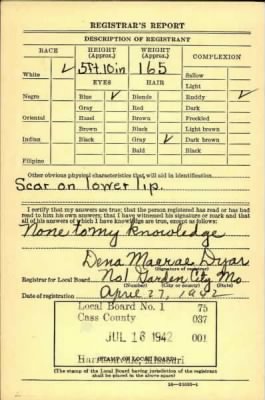 REGISTRAR'S REPORT
DESCRIPTION OF REGISTRANT
RACE HEIGHT (Approx.) WEIGHT (Approx.) COMPLEXION
White ✓ 5ft.10in 165 Sallow
EYES HAIR Light
Negro Blue ✓ Blonde Ruddy ✓
Gray Red Dark
Oriental Hazel Brown Freckled
Brown Black Light brown
Indian Black Gray ✓ Dark brown
Bald Black
Filipino
Other obvious physical characteristics that will aid in identification
Scar on lower lip.
I certify that my answers are true; that the person registered has read or has had
read to him his own answers; that I have witnessed his signature or mark and that
all of his answers of which I have knowledge are true, except as follows:
None to my knowledge
Dena Macrae Dyar
(Signature of registrar)
Registrar for Local Board No1 Garden City Mo
(Number) (City or county) (State)
Date of registration April 27, 1942
Local Board No. 1 75
Cass County 037
JUL 16 1942 001
Harrisonville, Missouri
(STAMP OF LOCAL BOARD)
(The stamp of the Local Board having jurisdiction of the registrant
shall be placed in the above space)